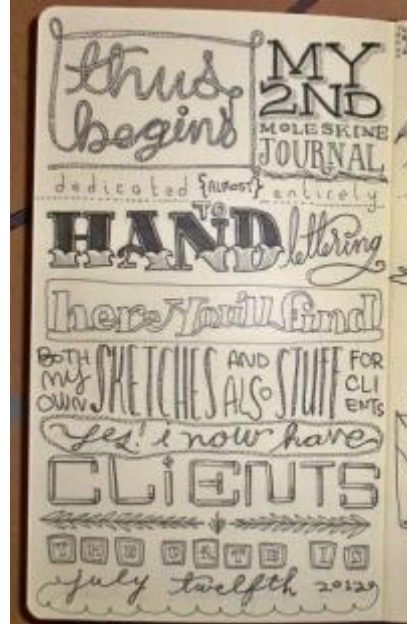 thus
begins
MY
2ND
MOLESKINE
JOURNAL
dedicated {ALMOST} entirely
TO
HAND lettering
here you'll find
BOTH MY OWN SKETCHES AND ALSO STUFF FOR CLIENTS
yes! i now have
CLiENTS
THE DATE IS
july twelfth